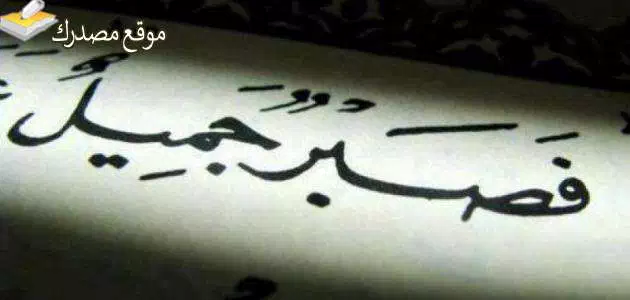 موقع مصدرك
فَصَبْرٌ جَمِيلٌ